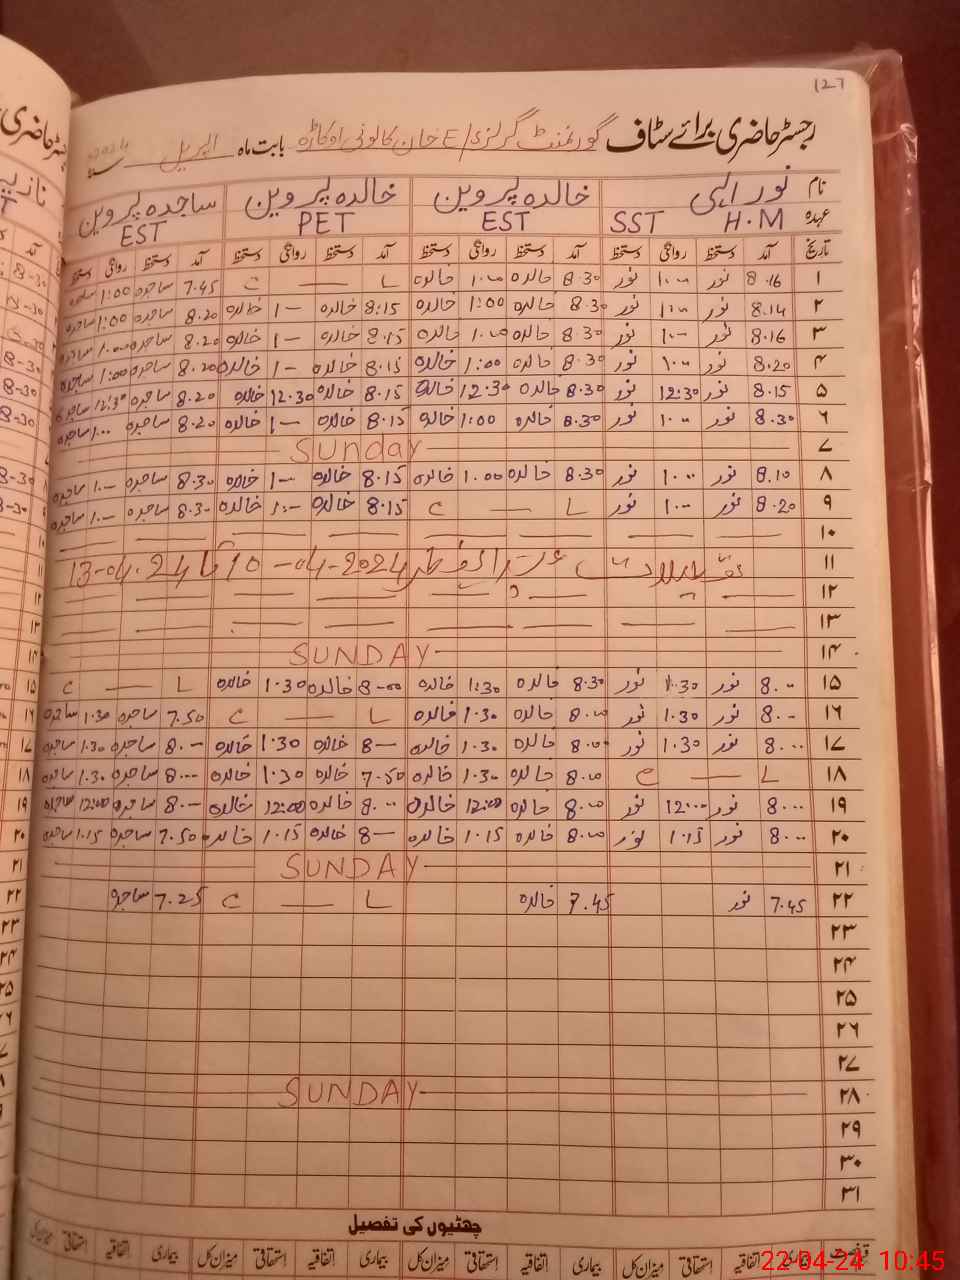 127
رجسٹر حاضری برائے سٹاف گورنمنٹ گرلز E/ خان کالونی اوکاڑہ بابت ماہ اپریل
نام نور الہی خالدہ پروین خالدہ پروین ساجدہ پروین
عہدہ H.M SST EST PET EST
تاریخ آمد دستخط روانگی دستخط آمد دستخط روانگی دستخط آمد دستخط روانگی دستخط آمد دستخط روانگی دستخط
۱ 8.16 نور 1.00 نور 8.30 خالدہ 1.00 خالدہ L — C 7.45 ساجدہ 1:00 ساجدہ
۲ 8.14 نور 1.00 نور 8.30 خالدہ 1:00 خالدہ 8:15 خالدہ 1- خالدہ 8.20 ساجدہ 1:00 ساجدہ
۳ 8.16 نور 1.0- نور 8.30 خالدہ 1.00 خالدہ 8.15 خالدہ 1- خالدہ 8.20 ساجدہ 1.00 ساجدہ
۴ 8.20 نور 1.00 نور 8.30 خالدہ 1:00 خالدہ 8.15 خالدہ 1- خالدہ 8.20 ساجدہ 1:00 ساجدہ
۵ 8.15 نور 12:30 نور 8.30 خالدہ 12.30 خالدہ 8.15 خالدہ 12.30 خالدہ 8.20 ساجدہ 12:30 ساجدہ
۶ 8.30 نور 1.00 نور 8.30 خالدہ 1:00 خالدہ 8.15 خالدہ 1- خالدہ 8.20 ساجدہ 1.00 ساجدہ
۷ Sunday
۸ 8.10 نور 1.00 نور 8.30 خالدہ 1.00 خالدہ 8.15 خالدہ 1- خالدہ 8.30 ساجدہ 1.- ساجدہ
۹ 8.20 نور 1.00 نور L — C 8.15 خالدہ 1.- خالدہ 8.30 ساجدہ 1.- ساجدہ
۱۰
۱۱ تعطیلات عید الفطر 10-04-2024 تا 13-04-24
۱۲
۱۳
۱۴ SUNDAY
۱۵ 8.00 نور 1.30 نور 8.30 خالدہ 1:30 خالدہ 8-00 خالدہ 1.30 خالدہ L — C
۱۶ 8.0- نور 1.30 نور 8.00 خالدہ 1.30 خالدہ L — C 7.50 ساجدہ 1.30 ساجدہ
۱۷ 8.00 نور 1.30 نور 8.00 خالدہ 1.30 خالدہ 8— خالدہ 1.30 خالدہ 8.0- ساجدہ 1.30 ساجدہ
۱۸ L — C 8.00 خالدہ 1.30 خالدہ 7.50 خالدہ 1.30 خالدہ 8.00 ساجدہ 1.30 ساجدہ
۱۹ 8.00 نور 12.00 نور 8.00 خالدہ 12:00 خالدہ 8.00 خالدہ 12:00 خالدہ 8.0- ساجدہ 12:00 ساجدہ
۲۰ 8.00 نور 1.15 نور 8.00 خالدہ 1.15 خالدہ 8— خالدہ 1.15 خالدہ 7.50 ساجدہ 1.15 ساجدہ
۲۱ SUNDAY
۲۲ 7.45 نور 7.45 خالدہ L — C 7.25 ساجدہ
۲۳
۲۴
۲۵
۲۶
۲۷
۲۸ SUNDAY
۲۹
۳۰
۳۱
چھٹیوں کی تفصیل
بیماری اتفاقیہ استحقاقی میزان کل بیماری اتفاقیہ استحقاقی میزان کل بیماری اتفاقیہ استحقاقی میزان کل بیماری اتفاقیہ استحقاقی میزان کل
22-04-24 10:45